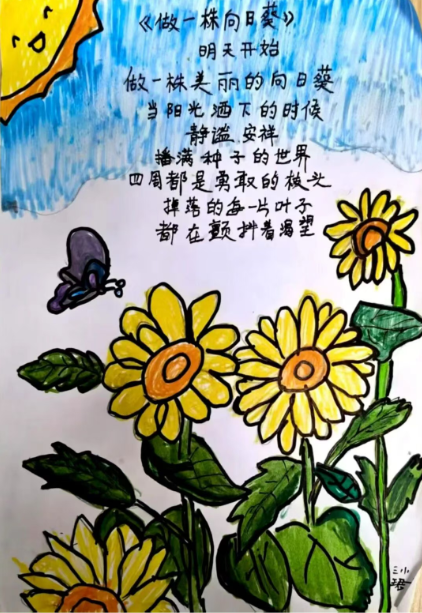 《做一株向日葵》
明天开始
做一株美丽的向日葵
当阳光洒下的时候
静谧、安祥
播满种子的世界
四周都是勇敢的枝头
掉落的每一片叶子
都在颤抖着渴望
三小